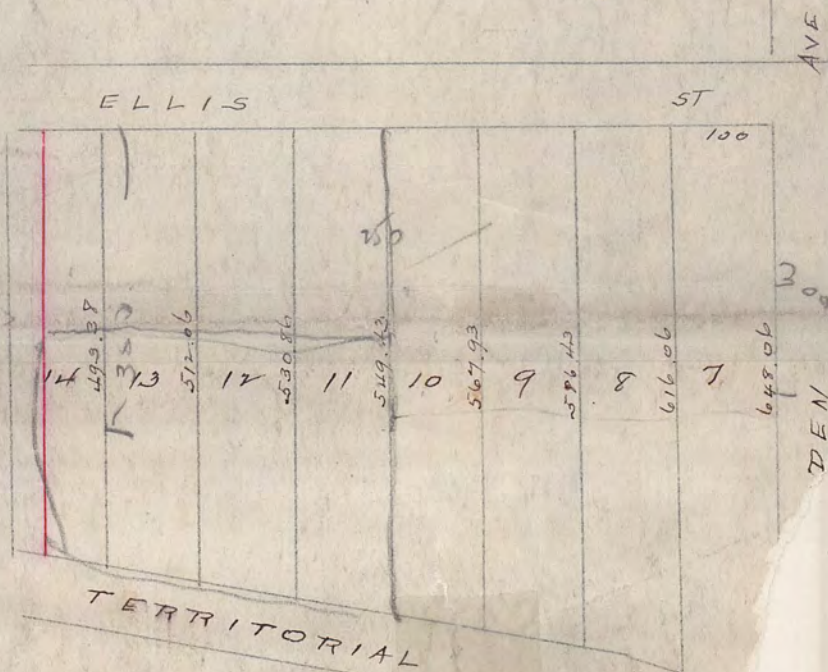 AVE
ELLIS ST
100
250
14 493.37 13 512.06 12 530.86 11 549.43 10 567.93 9 586.43 8 616.06 7 648.06
300
DEN
TERRITORIAL